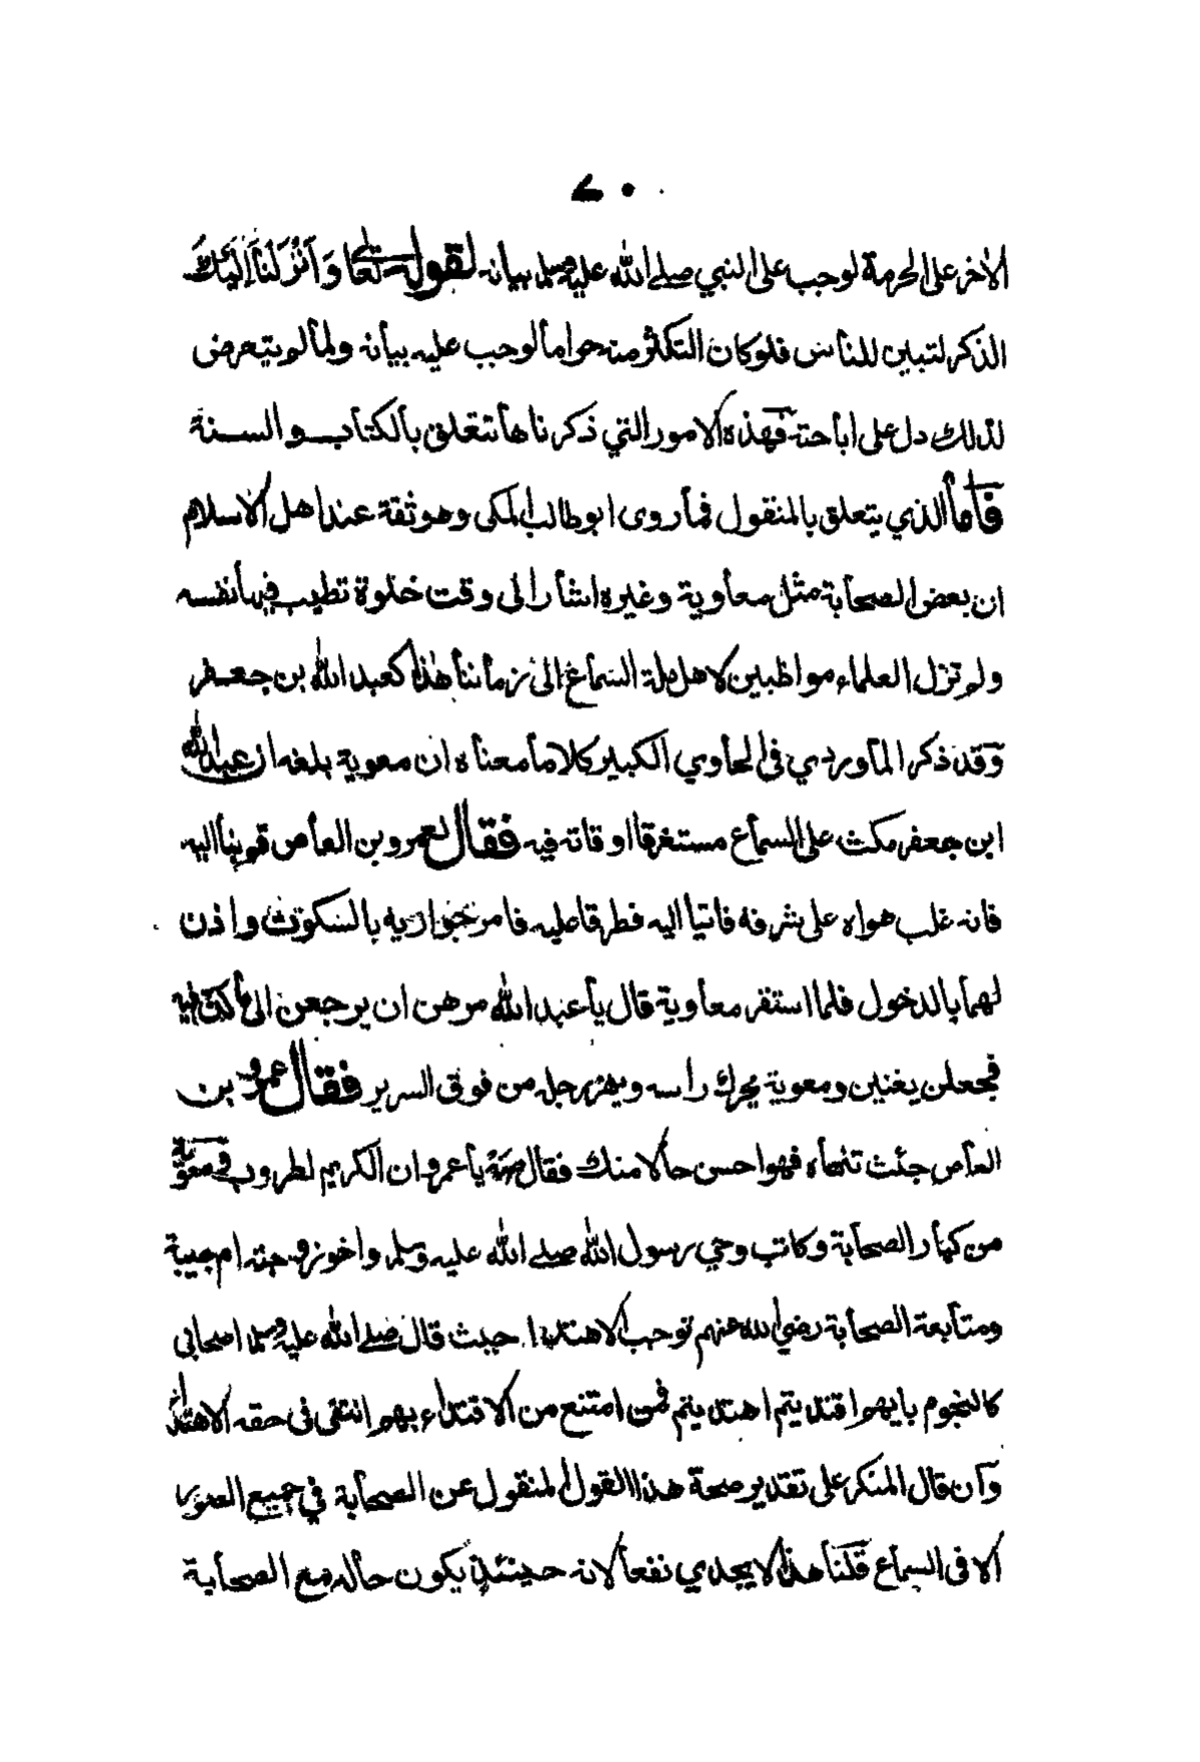 ٧٠
الاخر على الحرمة لوجب على النبي صلى الله عليه وسلم بيانه لقوله تعالى وَاَنْزَلْنَا اِلَيْكَ
الذكر لتبين للناس فلو كان التكثر منه حراما لوجب عليه بيانه ولما لم يتعرض
لذلك دل على اباحته فهذه الامور التي ذكرناها تتعلق بالكتاب والسنة
فاما الذي يتعلق بالمنقول فما روى ابو طالب المكى وهو ثقة عند اهل الاسلام
ان بعض الصحابة مثل معاوية وغيره اشار الى وقت خلوة تطيب فيها نفسه
ولم تزل العلماء مواظبين لاهل ملة السماع الى زماننا هذا كعبد الله بن جعفر
وقد ذكر الماوردي فى الحاوي الكبير كلاما معناه ان معوية بلغه ان عبد الله
ابن جعفر مكث على السماع مستغرقا اوقاته فيه فقال لعمرو بن العاص قم بنا اليه
فانه غلب هواه على شرفه فاتيا اليه فطرقا عليه فامر جواريه بالسكوت واذن
لهما بالدخول فلما استقر معاوية قال يا عبد الله مرهن ان يرجعن الى ما كن فيه
فجعلن يغنين ومعوية يحرك راسه ويهز رجله من فوق السرير فقال عمرو بن
العاص جئت تنهاه فهو احسن حالا منك فقال مه يا عمرو ان الكريم لطروب فمعوية
من كبار الصحابة وكاتب وحي رسول الله صلى الله عليه وسلم واخو زوجته ام حبيبة
ومتابعة الصحابة رضي الله عنهم توجب الاهتداء حيث قال صلى الله عليه وسلم اصحابى
كالنجوم بايهم اقتديتم اهتديتم فمن امتنع من الاقتداء بهم انتفى فى حقه الاهتداء
وان قال المنكر على تقدير صحة هذا القول المنقول عن الصحابة في جميع الصور
الا فى السماع قلنا هذا لا يجدي نفعا لانه حينئذ يكون حاله مع الصحابة